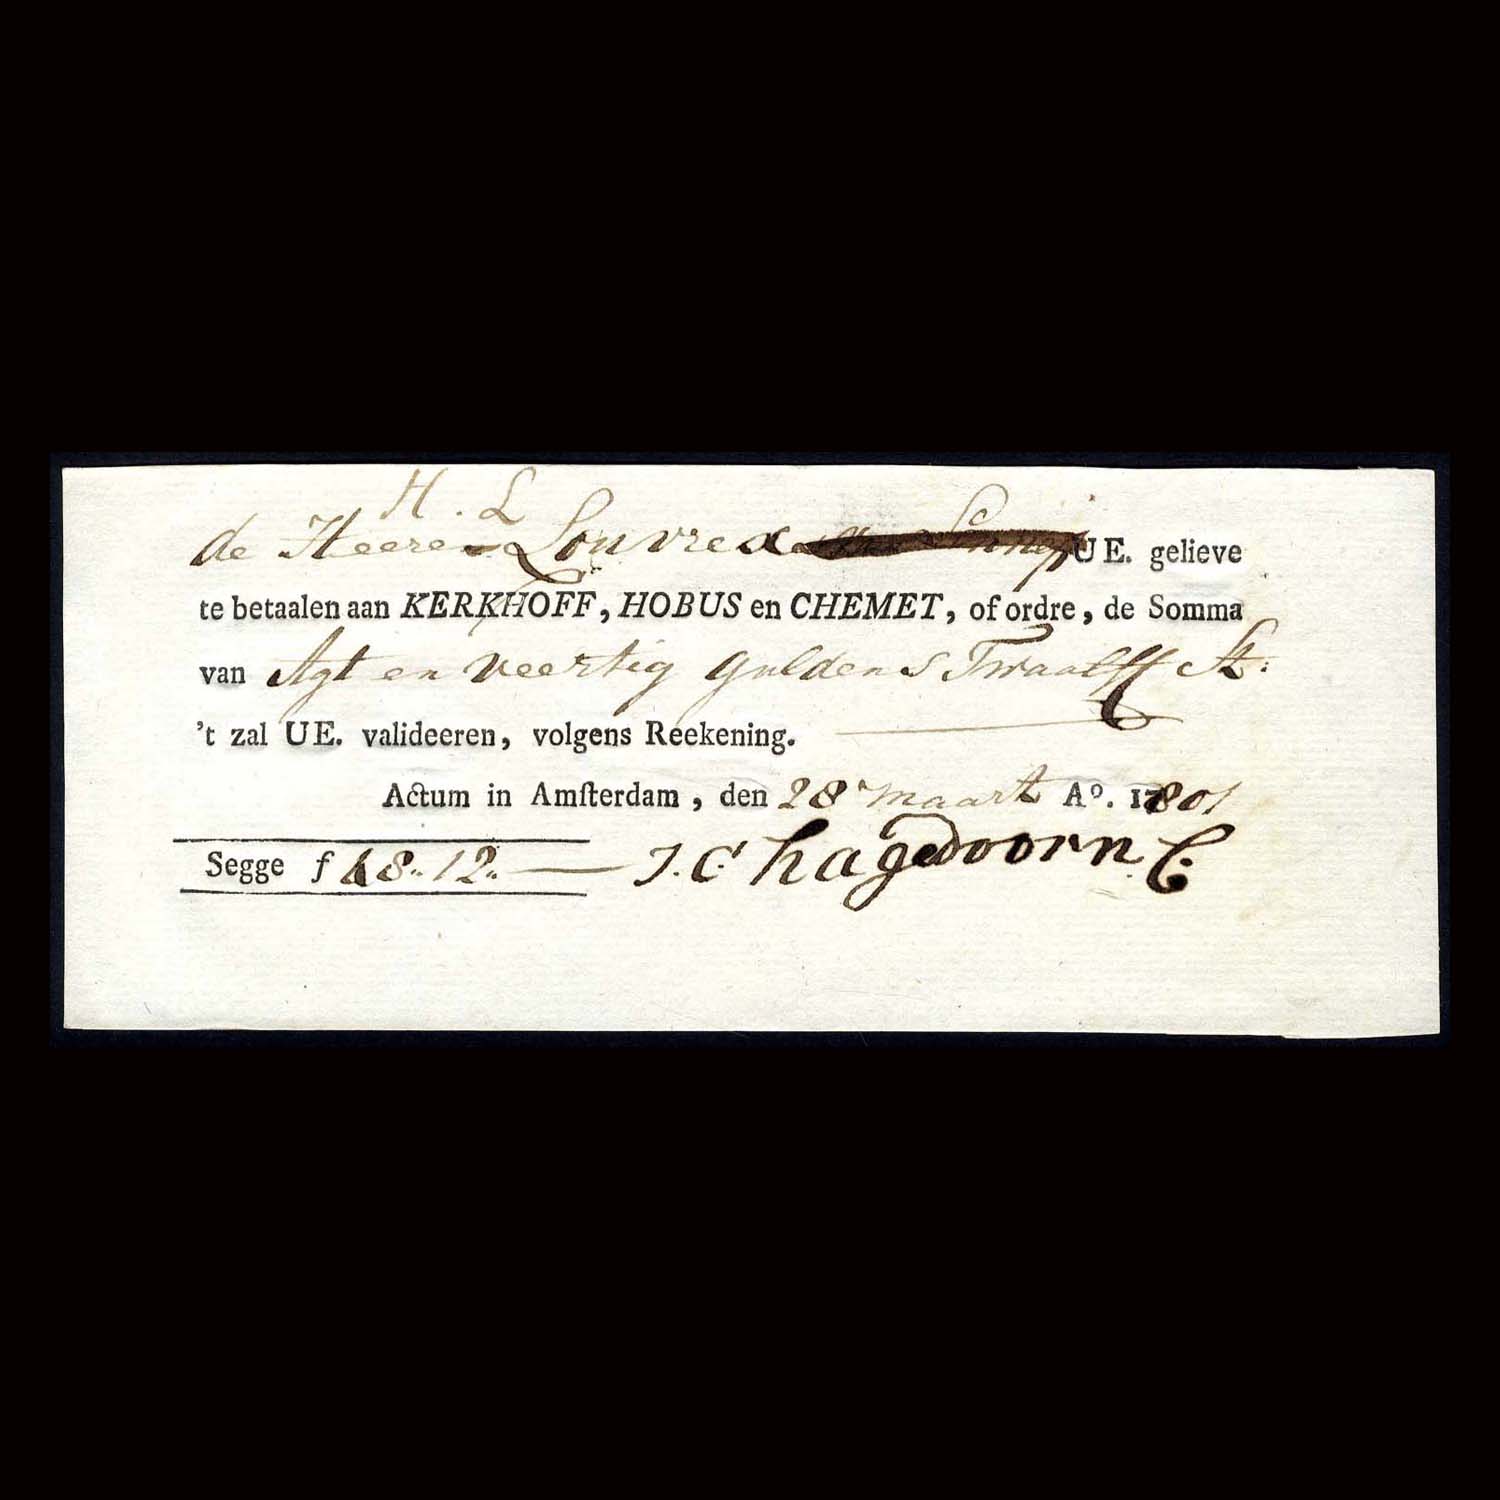 H. L
de Heeren Louvrex UE. gelieve
te betaalen aan KERKHOFF, HOBUS en CHEMET, of ordre, de Somma
van Agt en veertig guldens Twaalff St:
't zal UE. valideeren, volgens Reekening.
Actum in Amſterdam, den 28 maart Aº. 1801
Segge f 48.. 12.. J. C. hagedoorn C.